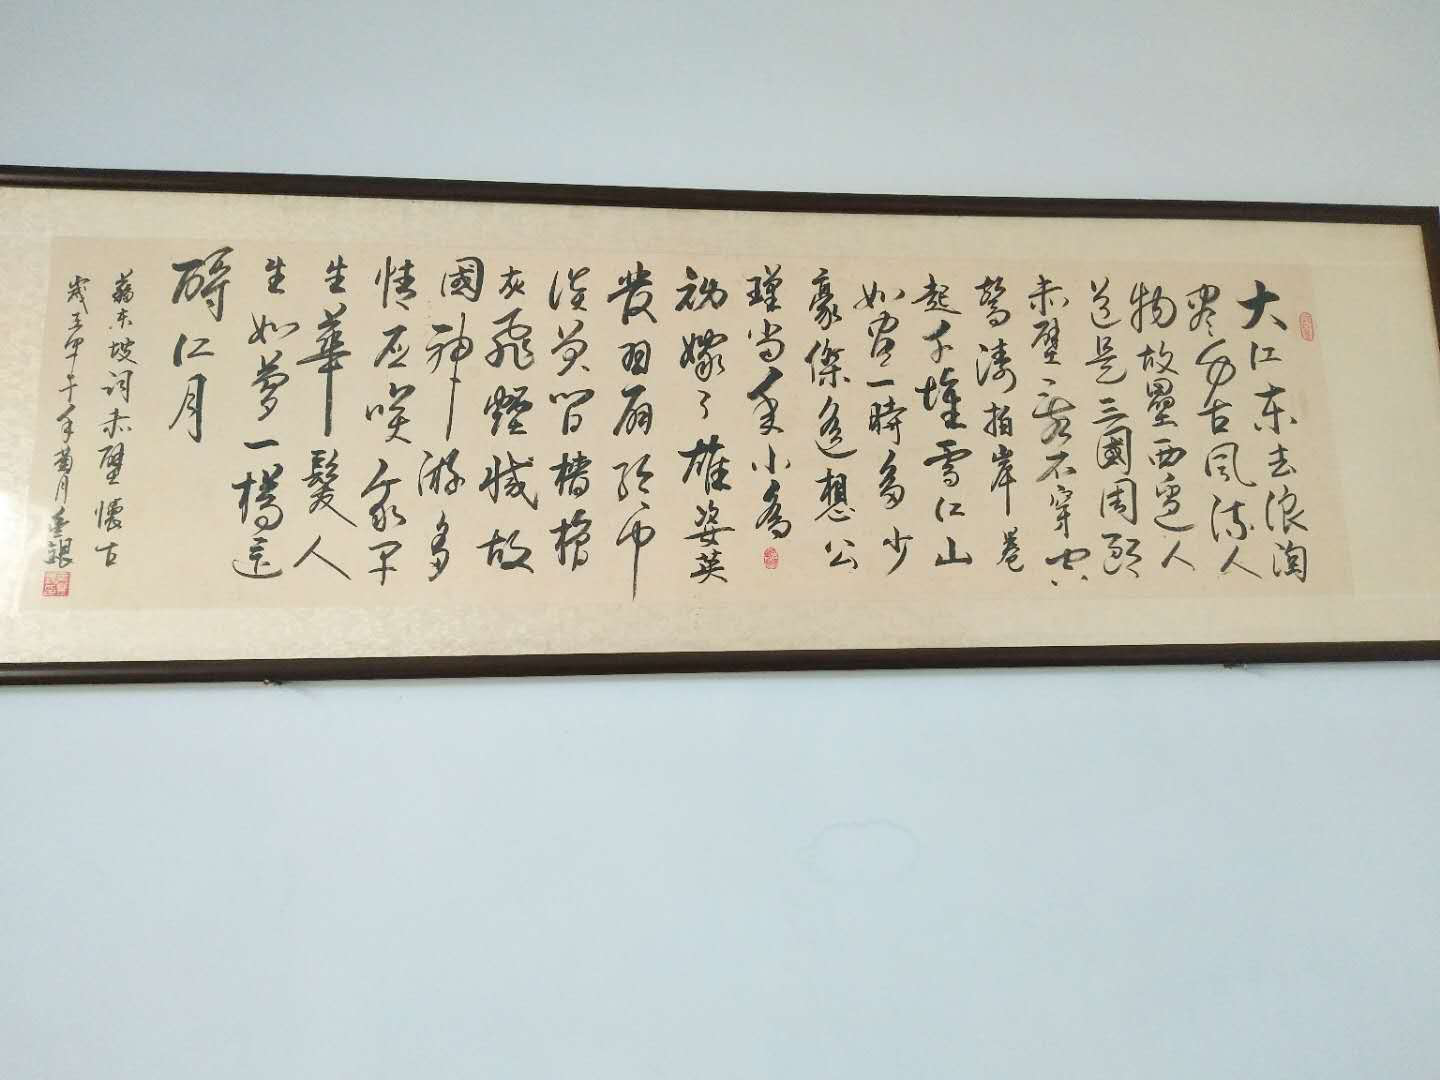 大江东去浪淘
盡万古風流人
物故壘西邊人
道是三國周郎
赤壁亂石穿空
驚濤拍岸卷
起千堆雪江山
如畫一時多少
豪傑遙想公
瑾當年小喬
初嫁了雄姿英
發羽扇綸巾
談笑間檣櫓
灰飛煙滅故
國神游多
情應笑我早
生華髮人
生如夢一樽還
酹江月
蘇东坡詞赤壁懷古
歲在甲午年菊月